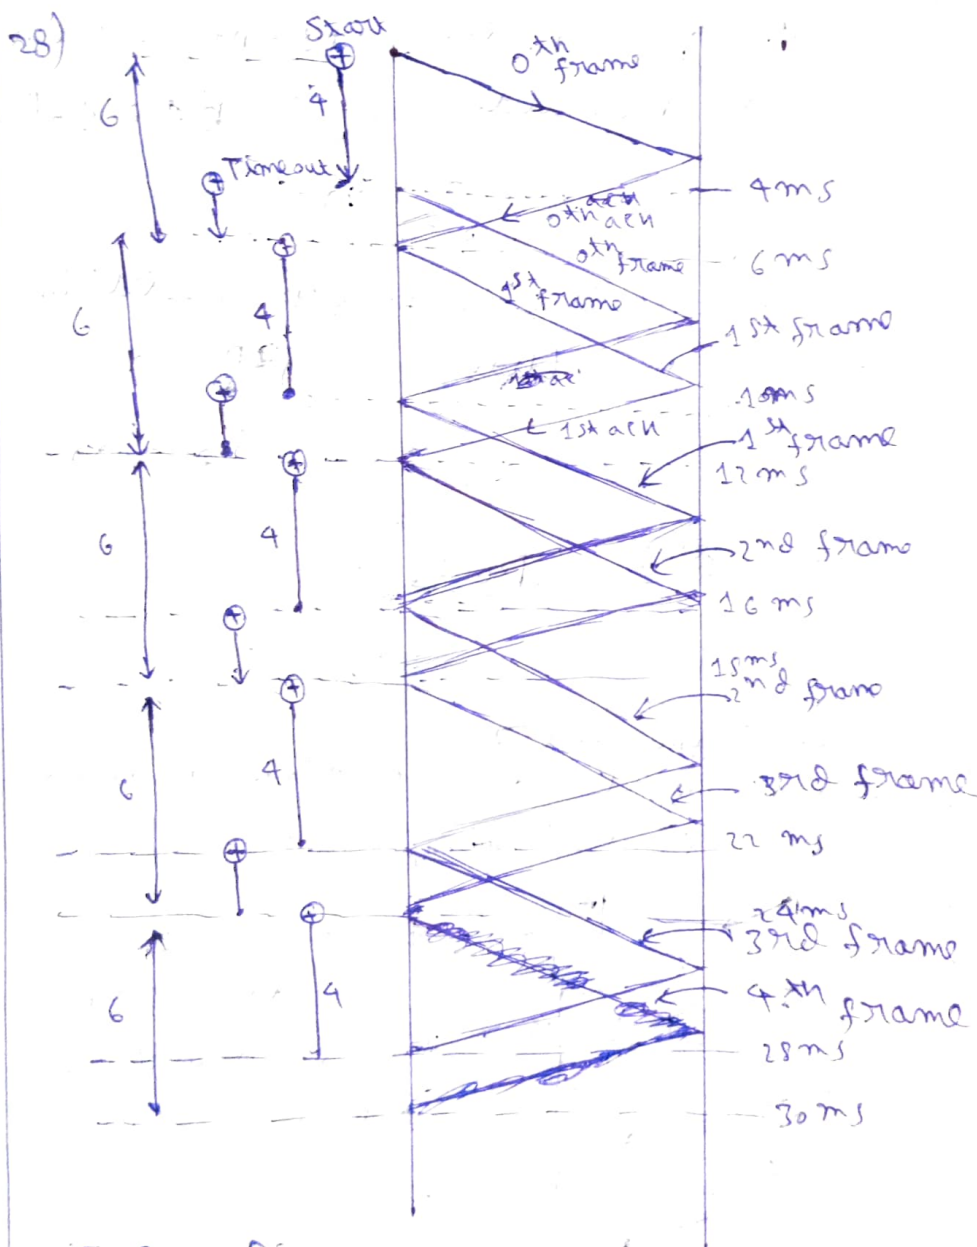 28)
Start
0th
frame
4
6
Timeout
4ms
0th ack
0th
frame
6ms
1st
frame
4
6
1st frame
10ms
1st ack
1st
frame
12ms
6
4
2nd frame
16 ms
18ms
2nd frame
4
6
3rd frame
22 ms
24ms
3rd frame
4
6
4th
frame
28ms
30ms